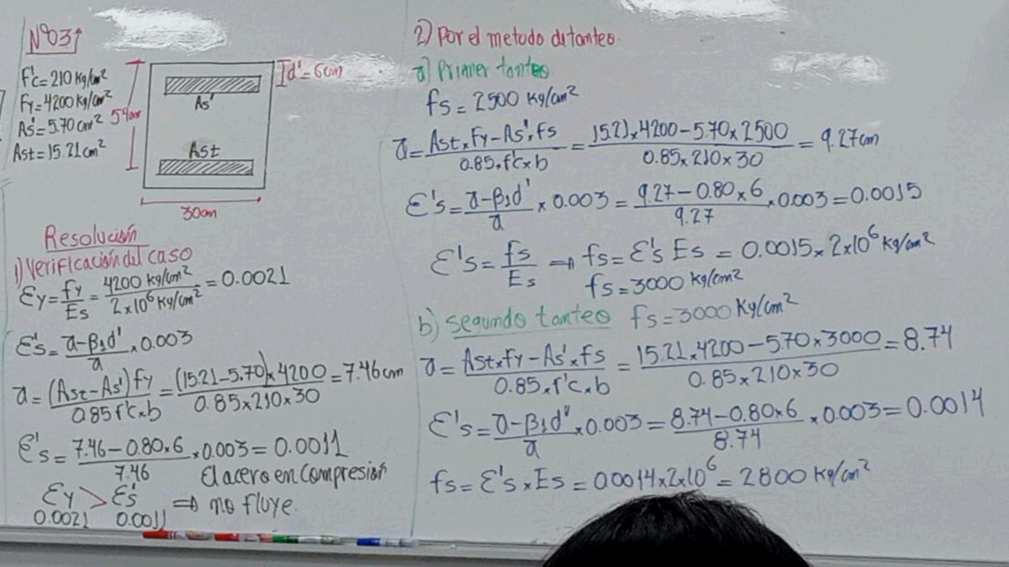 Nº03↑
f'c = 210 Kg/cm²
Fy = 4200 Kg/cm²
As' = 5.70 cm²
Ast = 15.21 cm²
54cm
d' = 6cm
As'
Ast
30cm
Resolución
1) Verificación del caso
Ey = fy/Es = 4200 kg/cm² / 2x10⁶ Kg/cm² = 0.0021
E's = a-β1d' / a x 0.003
a = (Ast-As')fy / 0.85f'c x b = (15.21-5.70)x4200 / 0.85x210x30 = 7.46cm
E's = 7.46-0.80x6 / 7.46 x 0.003 = 0.0011
El acero en compresión
Ey > E's ⇒ no fluye.
0.0021 0.0011
2) Por el metodo de tanteo.
a) Primer tanteo
fs = 2500 Kg/cm²
a = Ast x Fy - As' x fs / 0.85 x f'c x b = 15.21x4200-5.70x2500 / 0.85x210x30 = 9.27cm
E's = a-β1d' / a x 0.003 = 9.27-0.80x6 / 9.27 x 0.003 = 0.0015
E's = fs/Es ⇒ fs = E's Es = 0.0015x2x10⁶ Kg/cm²
fs = 3000 Kg/cm²
b) Segundo tanteo fs = 3000 Kg/cm²
a = Ast x fy - As' x fs / 0.85 x f'c x b = 15.21x4200-570x3000 / 0.85x210x30 = 8.74
E's = a-β1d' / a x 0.003 = 8.74-0.80x6 / 8.74 x 0.003 = 0.0014
fs = E's x Es = 0.0014x2x10⁶ = 2800 Kg/cm²